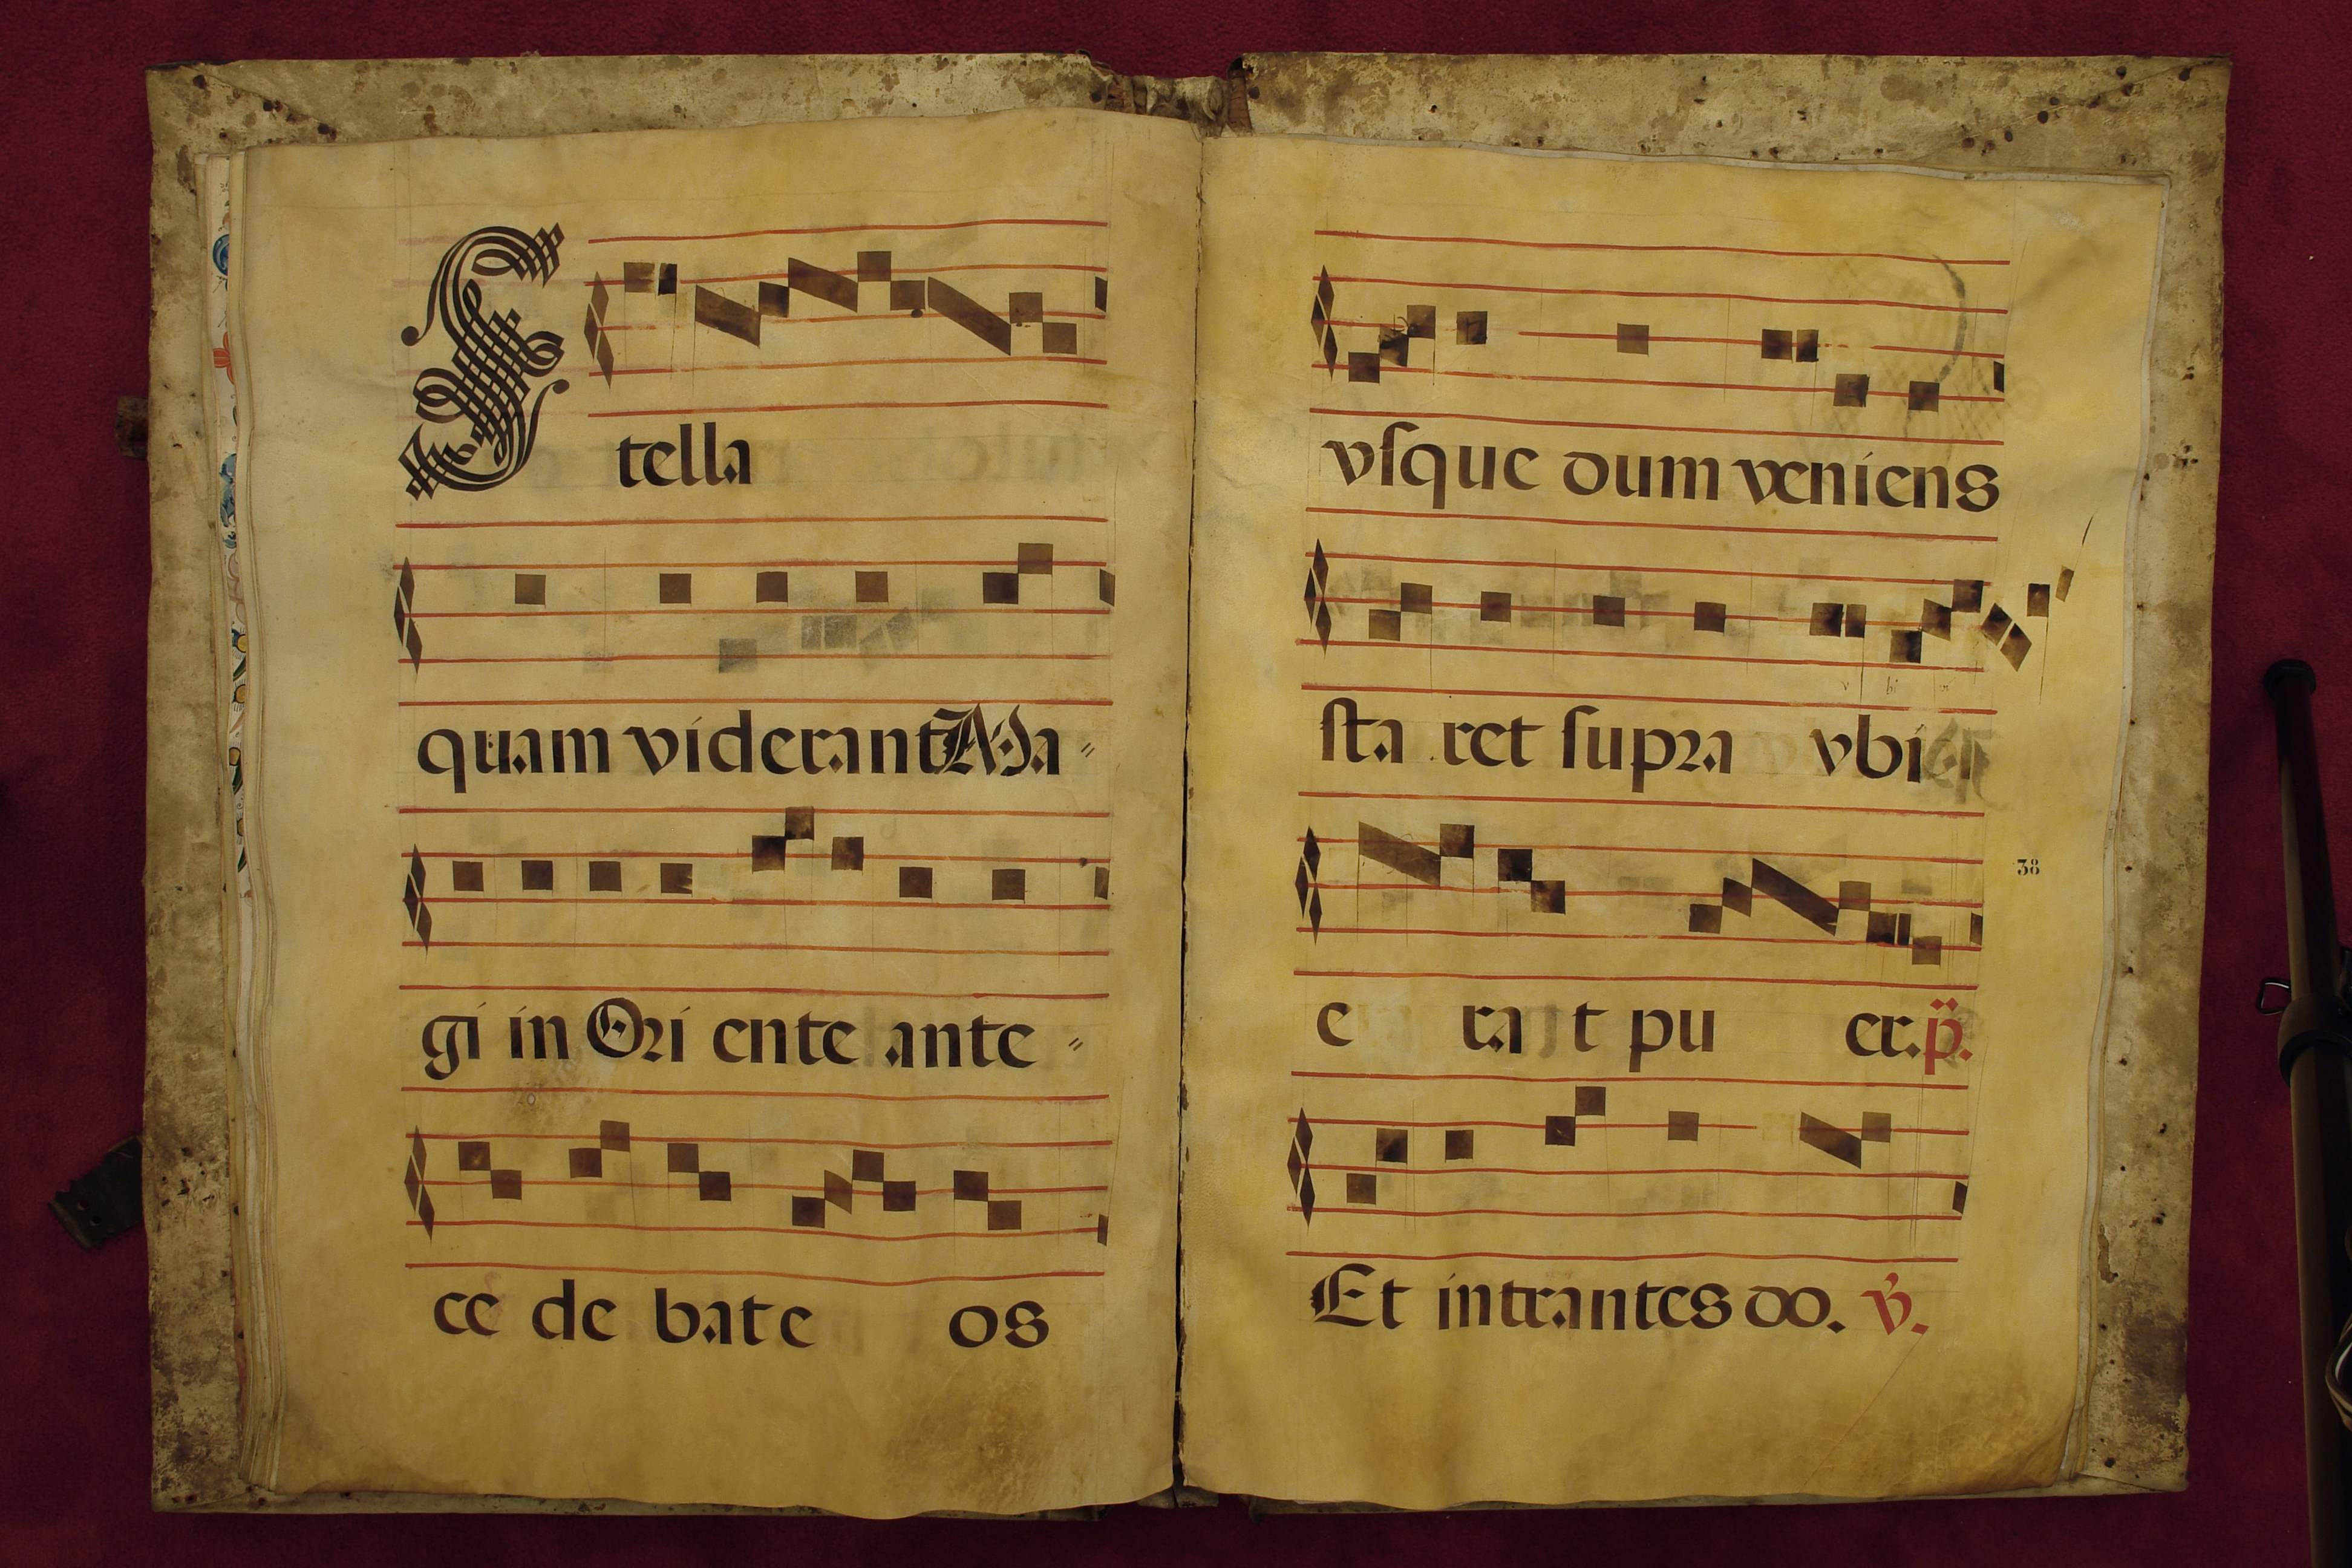 Stella
quam viderant Ma〃
gi in Ori ente ante 〃
ce de bat e os
vſque dum veniens
ſta ret ſupra vbi
38
e ra t pu er. p̈.
Et intrantes do. v̓.